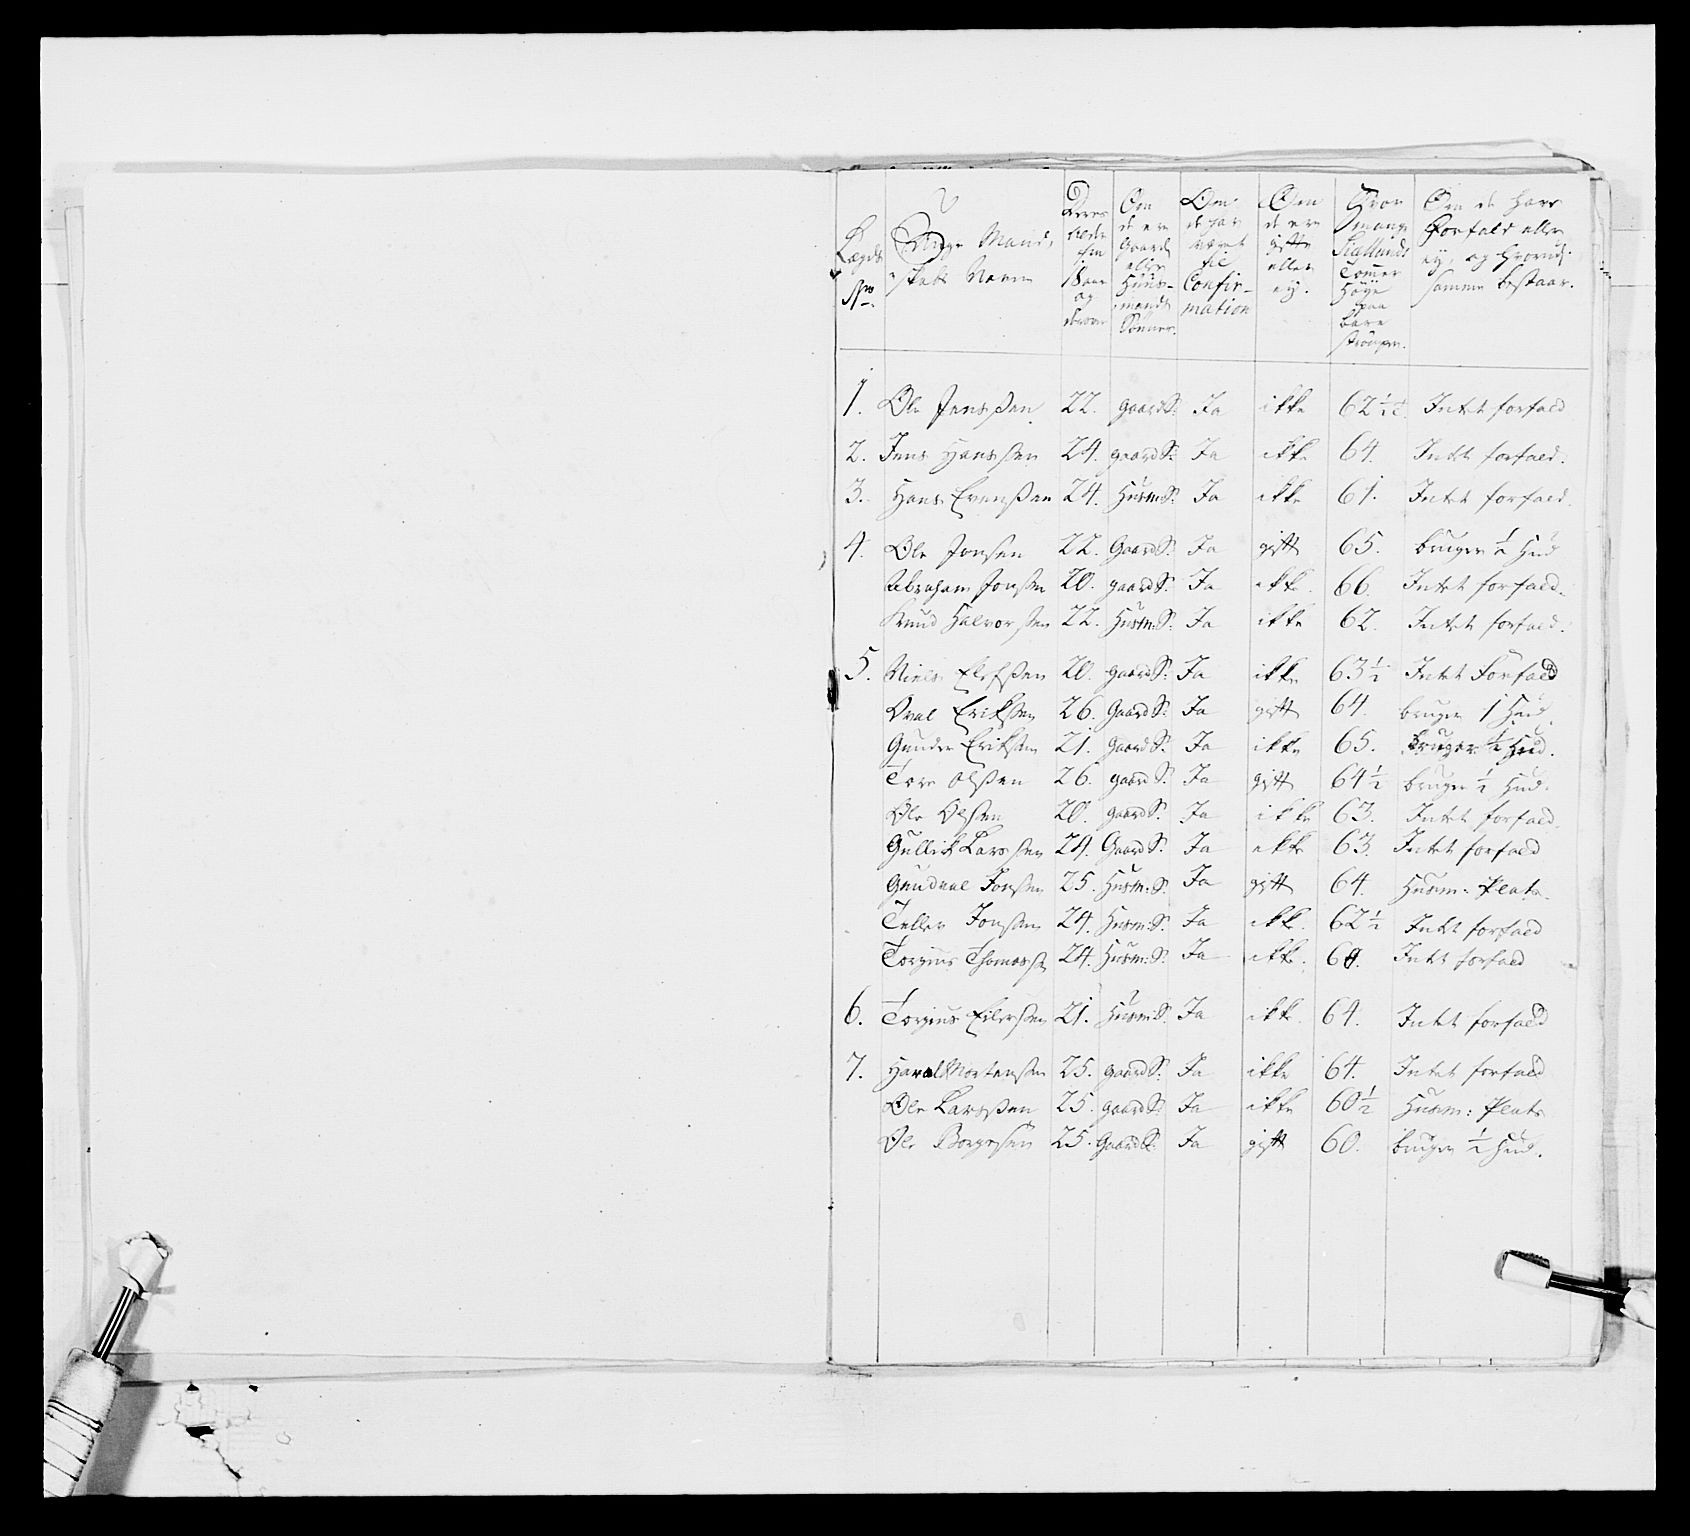 Lægds No. | Unge Mandskabs Navne | Deres Alder fra 18 aar og derover | Om de ere Gaards eller Huusmands Sønner. | Om de har været til Confirmation | Om de ere gifte eller ey. | Hvor mange Siællands Tomer Høye paa bare strømper. | Om de have Forfald eller ey, og hvorudi samme bestaar.
1. Ole Jensßen 22. gaardS: Ja ikke 62 1/2 t. Intet forfald
2. Jens Hansßen 24. gaardS: Ja ikke 64. Intet forfald.
3. Hans Evenßen 24. HusmS: Ja ikke 61. Intet forfald.
4. Ole Jonsen 22. GaardS: Ja gift 65. bruger 1/2 Hud
Abraham Jonßen 20. gaardS: Ja ikke. 66. Intet forfald.
Knud Halvorßen 22. Husm:S: Ja ikke 62. Intet forfald.
5. Niels Elefßen 20. gaardS: Ja ikke 63 1/2 Intet Forfald
Eriksen 26. GaardS: Ja gift 64. bruger 1 Hud.
Gunder Eriksen 21. GaardS: Ja ikke 65. bruger 1/2 Hud.
Tore Olßen 26. gaardS: Ja gift 64 1/2 bruger 1/2 Hud.
Ole Olßen 20. gaardS: Ja ikke 63. Intet forfald.
Gullik Larsßen 24. GaardS: Ja ikke 63. Intet forfald
Jonßen 25. Husm:S. Ja gift 64. Husm: Plads.
Tellev Jonßen 24. Husm:S: Ja ikk. 62 1/2 Intet forfald
Torgius Thomasß 24. Husm:S: Ja ikke. Intet forfald
6. Torgius Eilerßen 21. Husm:S. Ja ikke. 64. Intet forfald
7. Harald Mortensen 25. gaardS: Ja ikke 64. Intet forfald
Ole Larsßen 25. gaardS: Ja ikke 60 1/2 Husm: Plads
Ole Borgesen 25. GaardS: Ja gift 60. bruger 1/2 Hud.